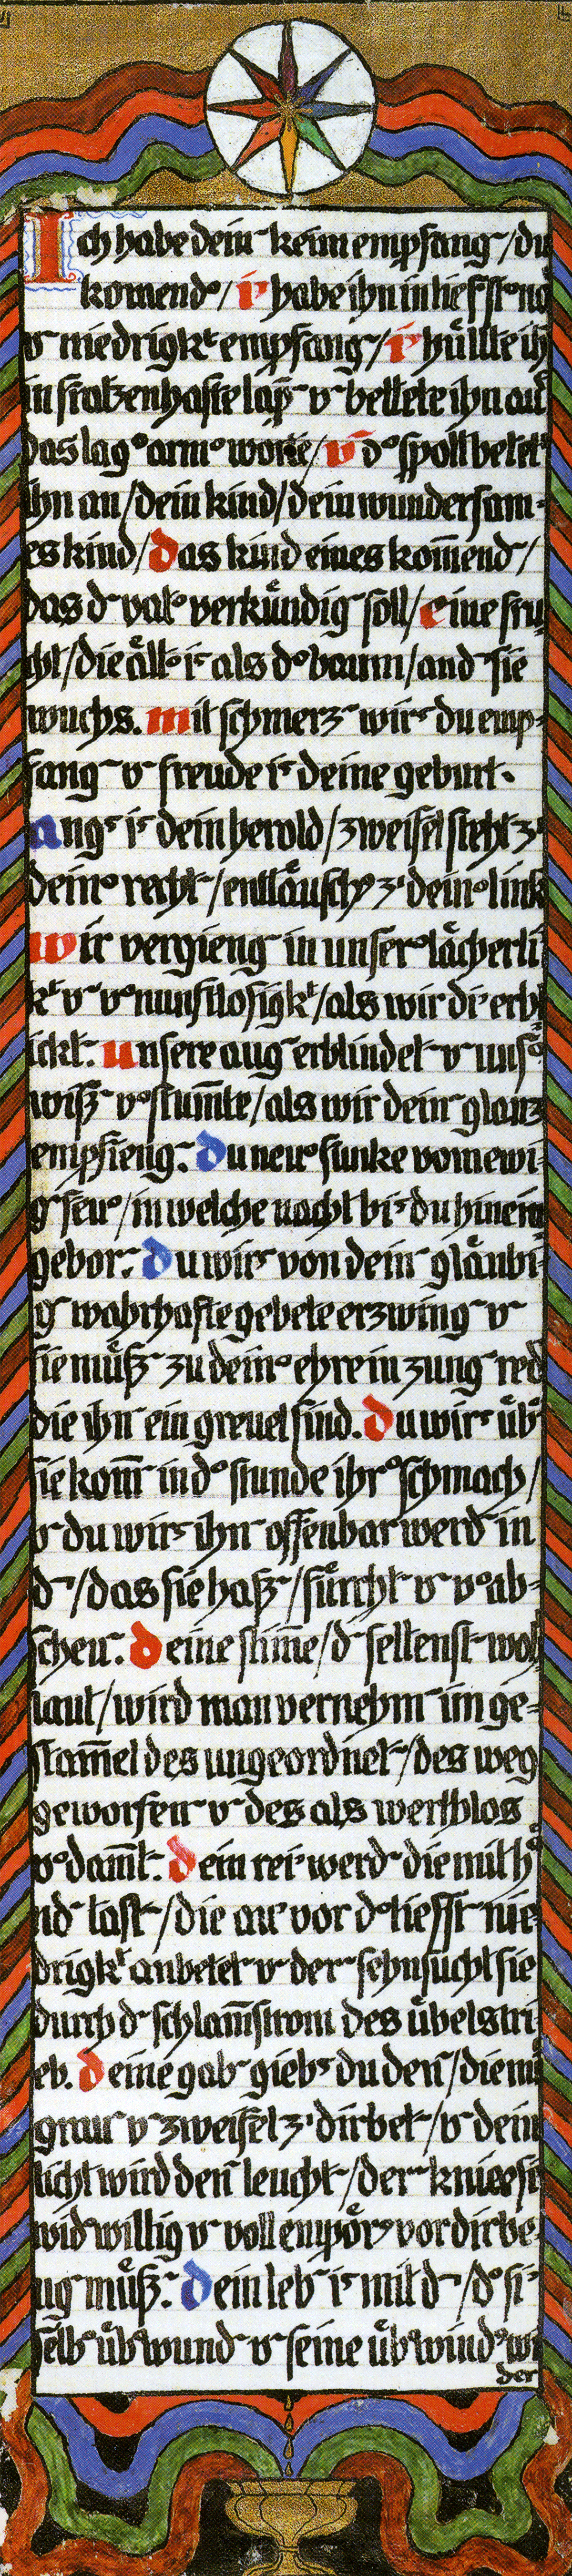 Ich habe dein keim empfang / du
komend / i habe ihn in tieffst no
v niedrigkt empfang / i hüllte ih
in fratzenhafte lap v bettete ihn auf
das lag arm worte / v d spott betet
ihn an / dein kind / dein wundersam-
es kind / das kind eines kom̄end /
das d vat verkündig soll / eine fru
cht / die ält is als d baum / and sie
wuchs. mit schmerz wirs du emp-
fang v freude is deine geburt.
angs is dein herold / zweifel steht z
dein recht / enttäusch z dein link
wir vergieng in unser lächerli
kt v vnunftlosigkt / als wir di erb
ickt. unsere aug erblindet v uns
wiß vstum̄te / als wir dein glanz
empfieng. Du neu funke vom ewi-
g feu / in welche nacht bis du hinein
gebor. Du wirs von dein gläubi-
g wahrhafte gebete erzwing v
sie müß zu dein ehre in zung red
die ihn ein greuel sind. Du wirs üb
sie kom̄ in d stunde ihr schmach /
v du wirs ihn offenbar werd in
d / das sie haß / fürcht v vab-
scheu. deine stim̄e / d seltenst wohl
laut / wird man vernehm im ge-
stam̄el des ungeordnet / des weg
geworfen v des als werthlos
vdam̄t. dein rei werd die mit hä
nd tast / die au vor d tieffst nie-
drigkt anbetet v der sehnsucht sie
durch d schlam̄strom des übels tri-
eb. deine gab giebs du den / die mi
grau v zweifel z dir bet / v dein
licht wird den leucht / der kniee si
widwillig v voll empör vor dir be-
ug müß. Dein leb is mit d / d si
selb übwund v seine übwind wi
der